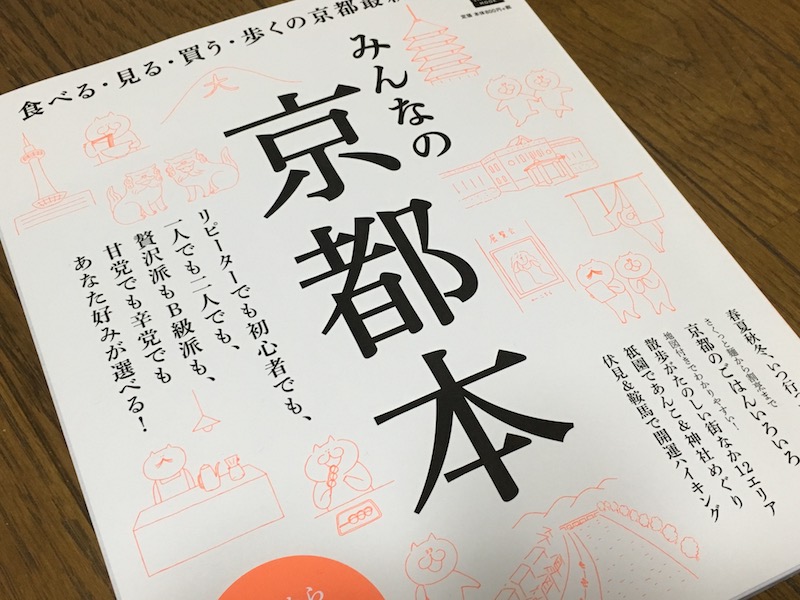 食べる・見る・買う・歩くの京都最新
みんなの
京都本
リピーターでも初心者でも、
一人でも二人でも、
贅沢派もB級派も、
甘党でも辛党でも
あなた好みが選べる！
春夏秋冬、いつ行っ
さくっと麺から割烹まで
京都のごはんいろいろ
地図付きでわかりやすい！
散歩がたのしい街なか12エリア
祇園であんこ&神社めぐり
伏見&鞍馬で開運ハイキング
展覧会